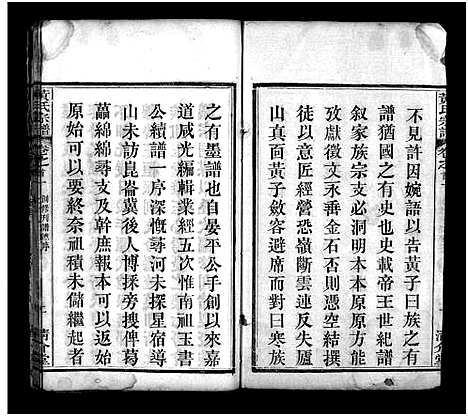 不見許因婉語以告黃子曰族之有
譜猶國之有史也史載帝王世紀譜
叙家族宗支必洞明本本原原方能
攷獻徵文永垂金石否則憑空結撰
徒以意匠經營恐嶺斷雲連反失廬
山真面黃子斂容離席而對曰寒族
之有墨譜也自晏平公手創以來嘉
道咸光編輯業經五次惟南祖玉書
公續譜一序深慨尋河未探星宿導
山未訪崑崙冀後人博採旁搜俾葛
藟綿綿尋支及幹庶報本尊親探本
原始可以要終奈祖積未儲繼起者
黃氏宗譜
黃氏宗譜